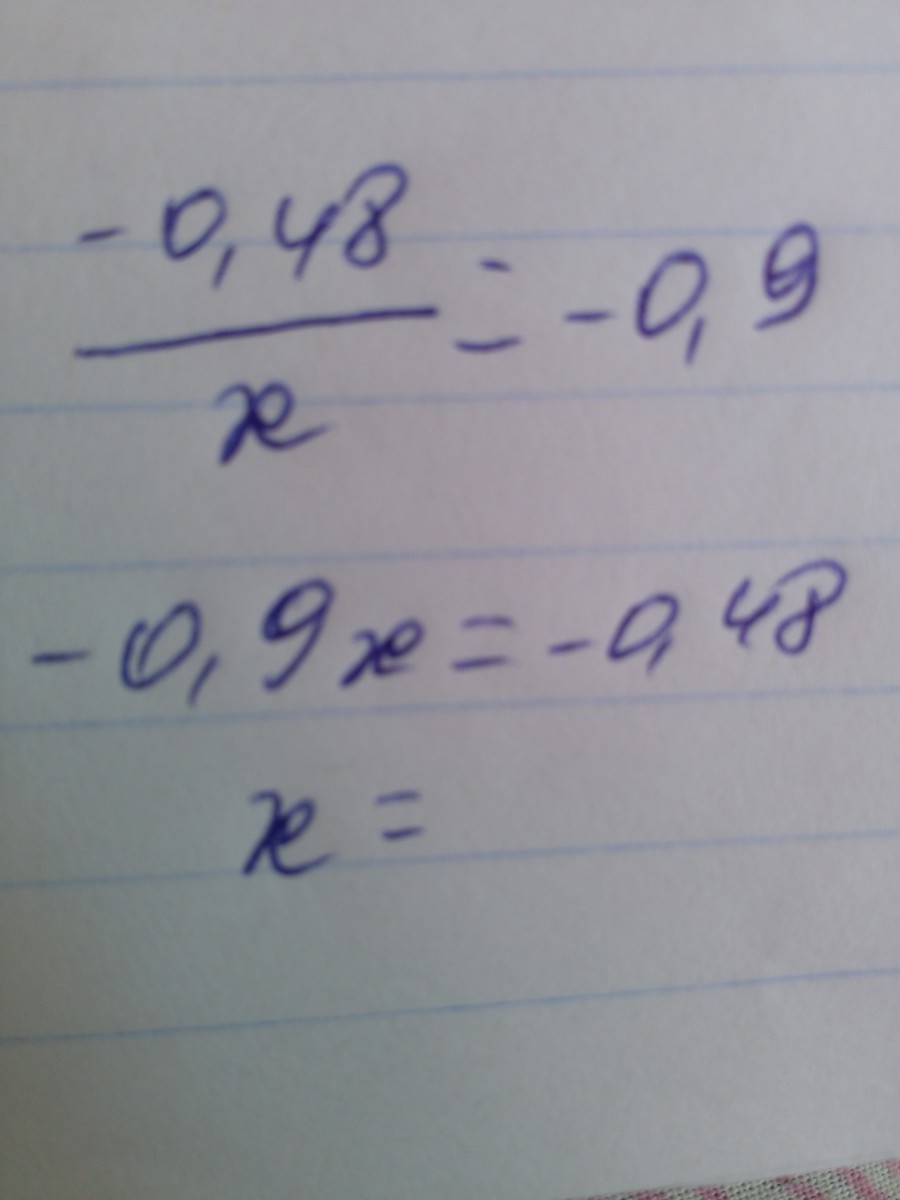 -0,48
x
= -0,9
-0,9x = -0,48
x =